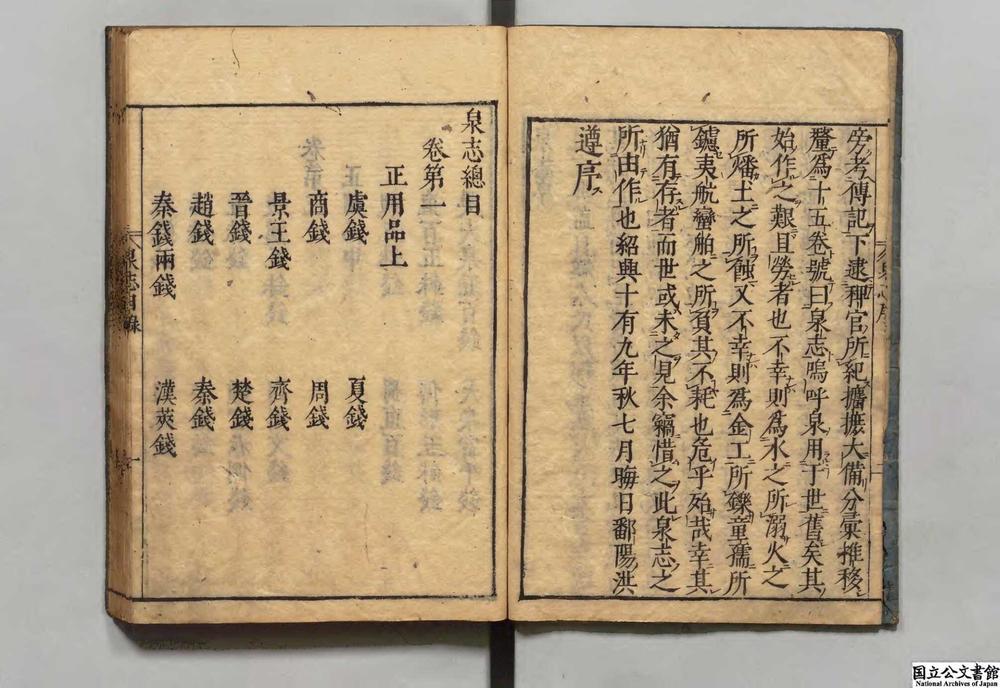 旁考傳記下逮稗官所紀攟摭大備分彙推移
釐為十五卷號曰泉志嗚呼泉用于世舊矣其
始作之艱且勞者也不幸則為水之所溺火之
所燔土之所蝕又不幸則為金工所鑠童孺所
鑢夷航蠻舶之所負其不耗也危乎殆哉幸其
猶有存者而世或未之見余竊惜之此泉志之
所由作也紹興十有九年秋七月晦日鄱陽洪
遵序
泉志總目
卷第一
正用品上
虞錢 夏錢
商錢 周錢
景王錢 齊錢
晉錢 楚錢
趙錢 秦錢
秦錢兩錢 漢莢錢
泉志目錄
国立公文書館
National Archives of Japan